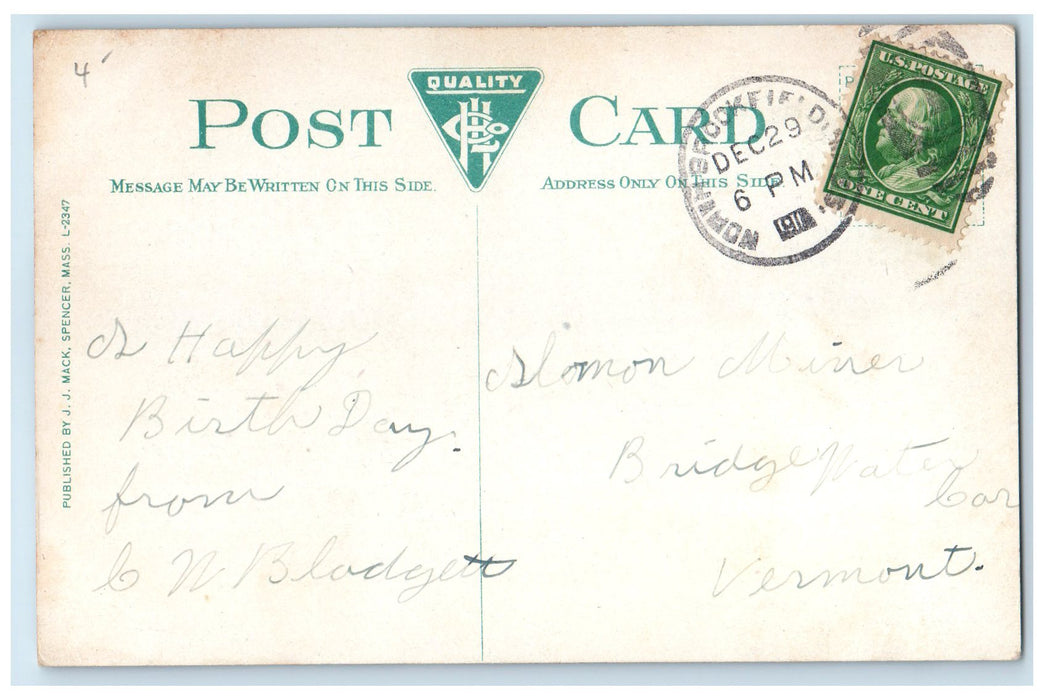 4
POST CARD
QUALITY
MESSAGE MAY BE WRITTEN ON THIS SIDE.
ADDRESS ONLY ON THIS SIDE
U.S. POSTAGE
ONE CENT
NORTH BROOKFIELD
DEC 29
6 PM
PUBLISHED BY J. J. MACK, SPENCER, MASS. L-2347
A Happy
Birth Day.
from
C W Blodgett
Slomon Miner
Bridge Water
Cor
Vermont.